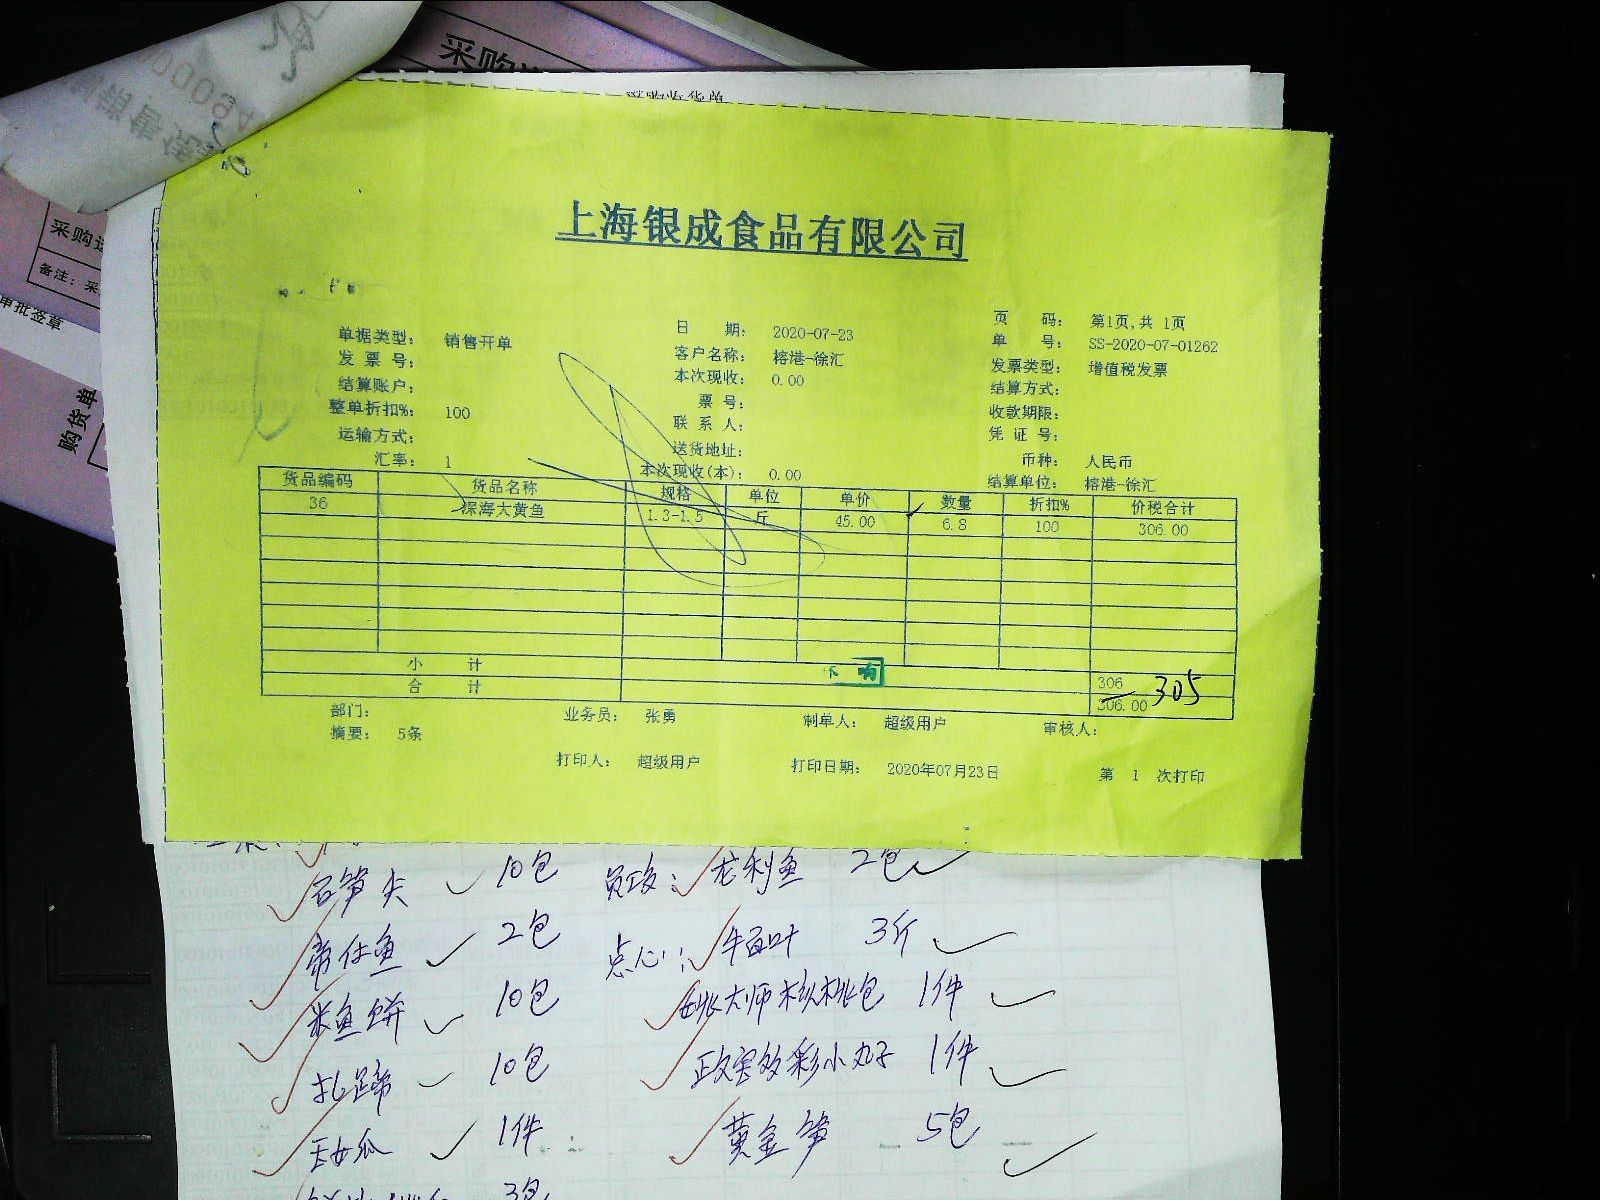 采购
采购收货单
采购
备注：采
审批签章
购货单
上海银成食品有限公司
单据类型： 销售开单 日 期： 2020-07-23 页 码： 第1页,共 1页
发 票 号： 客户名称： 榕港-徐汇 单 号： SS-2020-07-01262
结算账户： 本次现收： 0.00 发票类型： 增值税发票
整单折扣%： 100 票 号： 结算方式：
运输方式： 联 系 人： 收款期限：
汇率： 1 送货地址： 凭 证 号：
本次现收(本)： 0.00 币种： 人民币
结算单位： 榕港-徐汇
货品编码 货品名称 规格 单位 单价 数量 折扣% 价税合计
36 深海大黄鱼 1.3-1.5 斤 45.00 6.8 100 306.00
小 计 306
合 计 306.00 305
部门： 业务员： 张勇 制单人： 超级用户 审核人：
摘要： 5条
打印人： 超级用户 打印日期： 2020年07月23日 第 1 次打印
石笋尖 10包 龙利鱼 2包
鱼 2包 点心： 牛百叶 3斤
米鱼饼 10包 姚大师核桃包 1件
10包 多彩小丸子 1件
1件 黄金笋 5包
3包